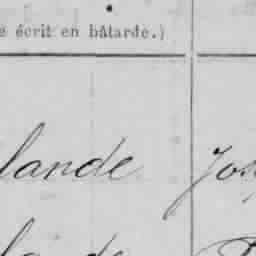 é écrit en bâtarde.)
lande Jos